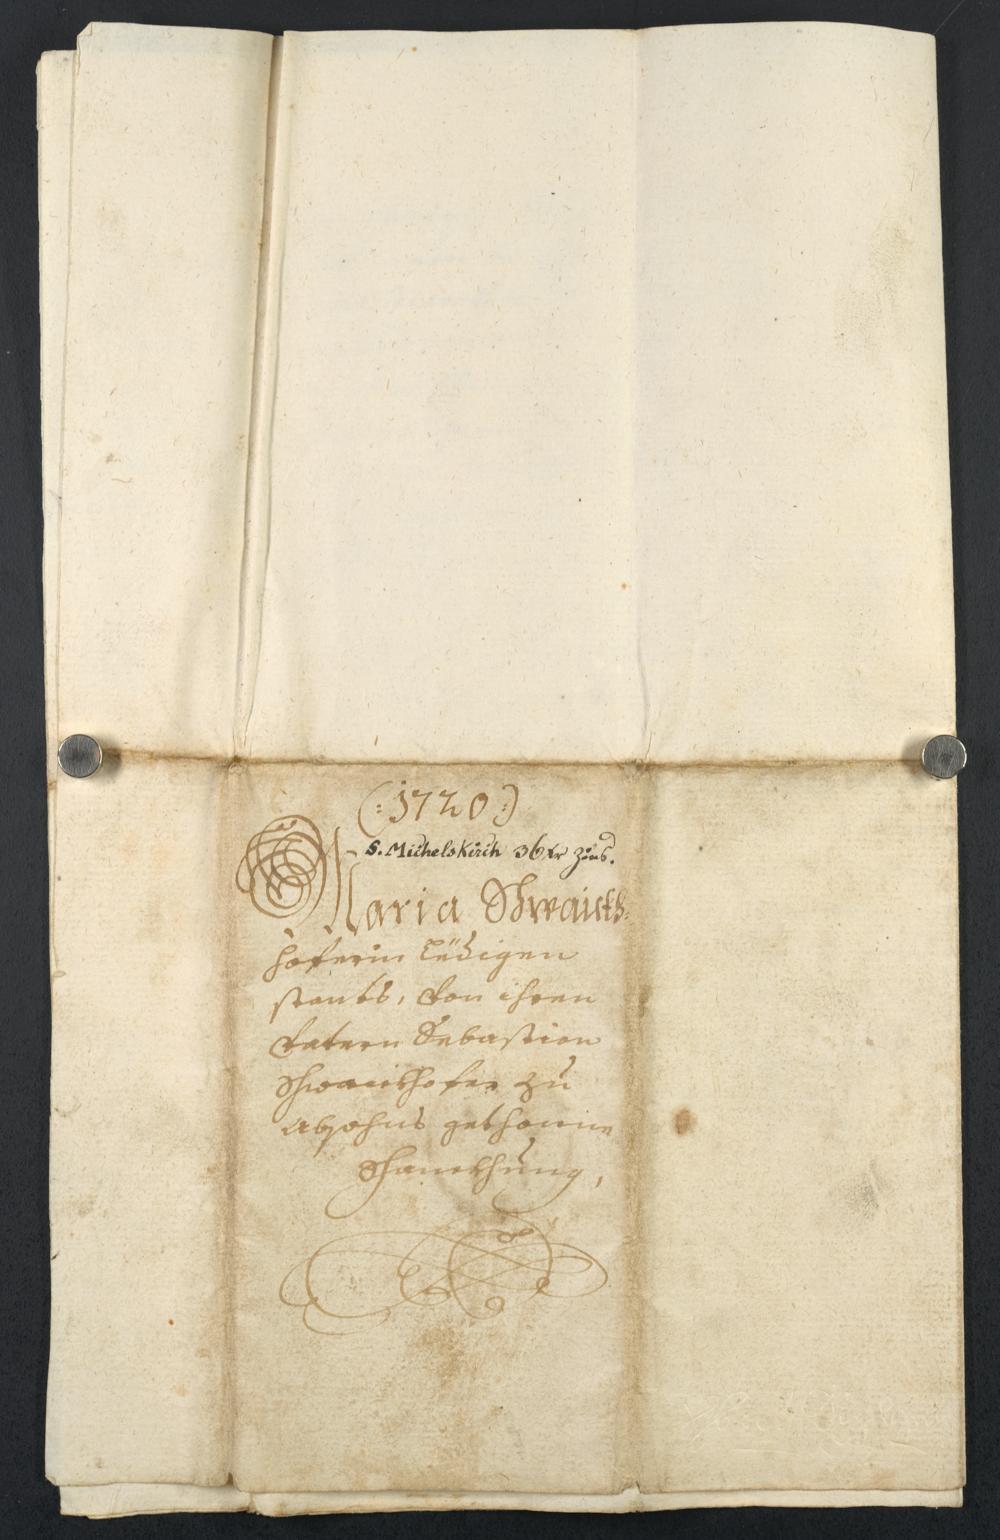 (: 1720 :)
S. Michelskirch 36 kr Zins.
Maria Schwaickh:
hoferin Ledigen
standts, von ihren
Vatern Sebastian
Schwaickhofer zu
Absohns gethonne
Schanckhung,